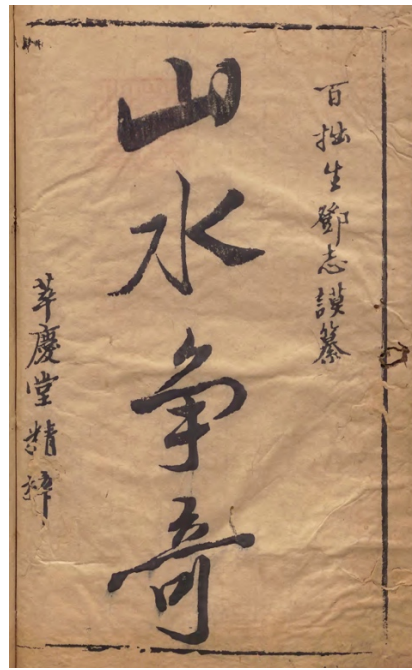 百拙生鄧志謨纂
山水争竒
萃慶堂精梓